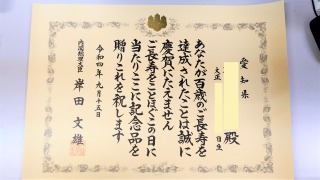 愛知県
殿
大正
日生
あなたが百歳のご長寿を
達成されたことは誠に
慶賀にたえません
ご長寿をことほぐこの日に
当たりここに記念品を
贈りこれを祝します
令和四年九月十五日
内閣総理大臣 岸田文雄